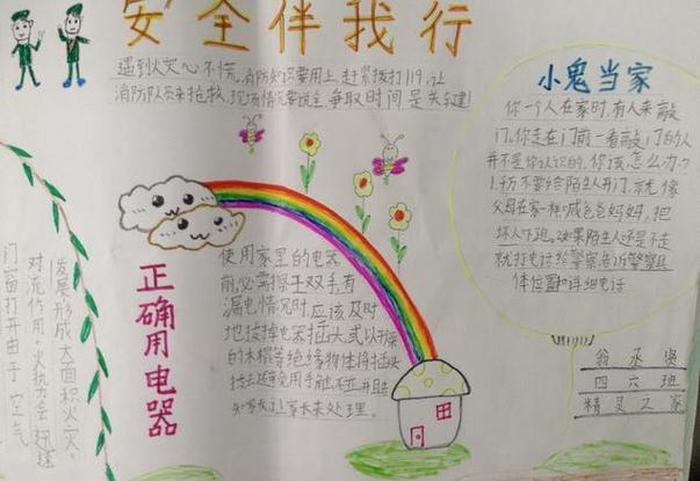 安全伴我行
遇到火灾心不慌,消防知识要用上,赶紧拨打119,让
消防队员来抢救,现场情况要说全,争取时间是关键!
小鬼当家
你一个人在家时,有人来敲
门,你走在门前一看敲门的人
并不是你认识的,你该怎么办?
1.千万不要给陌生人开门,就像
父母在家一样喊爸爸妈妈,把
坏人下跑。如果陌生人还是不走
就打电话给警察,告诉警察具
体位置和详细电话
翁承
四六班
精灵之家
正确用电器
使用家里的电器
前,必需擦干双手,有
漏电情况时,应该及时
地拔掉电器插头,或以干燥
的木棍等绝缘物体将插头
拔去,避免用手触碰,并且告
知家长让家长来处理。
门窗打开由于空气
对流作用。火势力会迅速
发展形成大面积火灾。